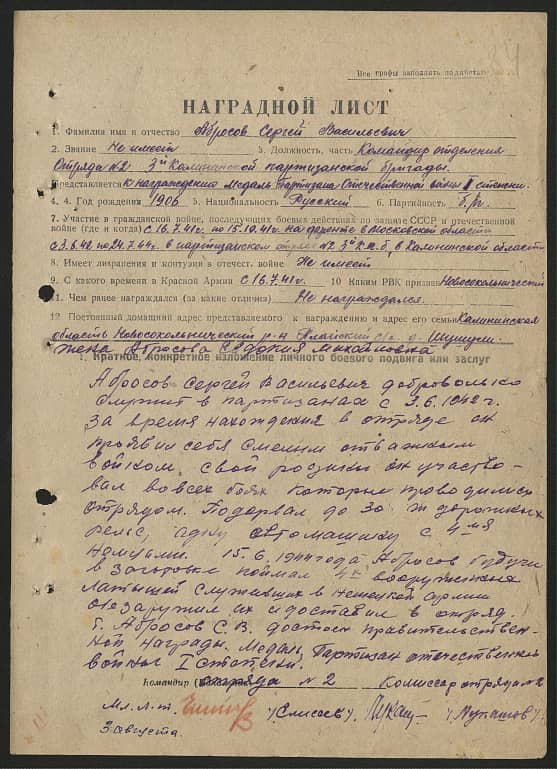 Все графы заполнять полностью
НАГРАДНОЙ ЛИСТ
1. Фамилия имя и отчество Абросов Сергей Васильевич
2. Звание Не имеет 3. Должность, часть Командир отделения
Отряда №2 3й Калининской партизанской бригады.
Представляется к награждению Медаль Партизана Отечественной войны I степени.
4. 4. Год рождения 1906 5. Национальность Русский 6. Партийность б/п.
7. Участие в гражданской войне, последующих боевых действиях по защите СССР и отечественной
войне (где и когда) с 16.7.41г. по 15.10.41г. на фронте в Московской области
с 3.6.42 по 24.7.44г. в партизанском отряде №2 3й К.п.б. в Калининской области
8. Имеет ли ранения и контузии в отечест. войне Не имеет
9. С какого времени в Красной Армии С 16.7.41г. 10 Каким РВК призван Новосокольническим
11. Чем ранее награждался (за какие отличия) Не награждался.
12 Постоянный домашний адрес представляемого к награждению и адрес его семьи Калининская
область Новосокольнический р-н с/с д.
жена Абросова Евдокия Михайловна
1. Краткое, конкретное изложение личного боевого подвига или заслуг
Абросов Сергей Васильевич добровольно
служит в партизанах с 3.6.1942г.
За время нахождения в отряде он
проявил себя смелым отважным
войном, свой родины он участво-
вал во всех боях которые проводились
отрядом. Подорвал до 30 ж дорожных
рельс, одну автомашину с 4мя
немцами. 15.6.1944 года Абросов будучи
в заготовке поймал 4х вооруженных
латышей служивших в немецкой армии
обезаружил их и доставил в отряд.
т. Абросов С.В. достоен правительствен-
ной награды. Медаль, Партизан отечественной
войны I степени.
Командир отряда №2 Комиссар отряда №2
Мл. л-т. /Елисеев/. /Лукашов/.
3 августа.